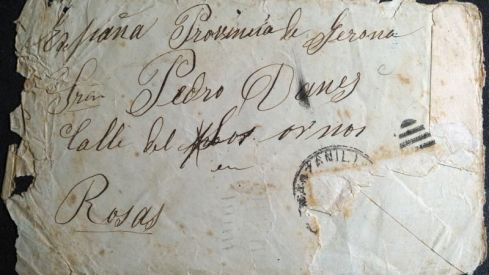 España Provincia de Gerona
Pedro Danes
Calle de los ornos
en
Rosas
MANZANIL